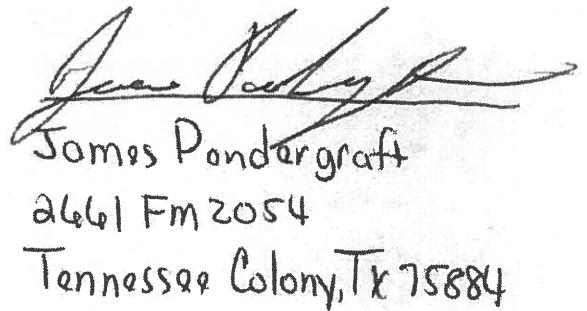 James Pendergraft
2661 Fm 2054
Tennessee Colony, Tx 75884